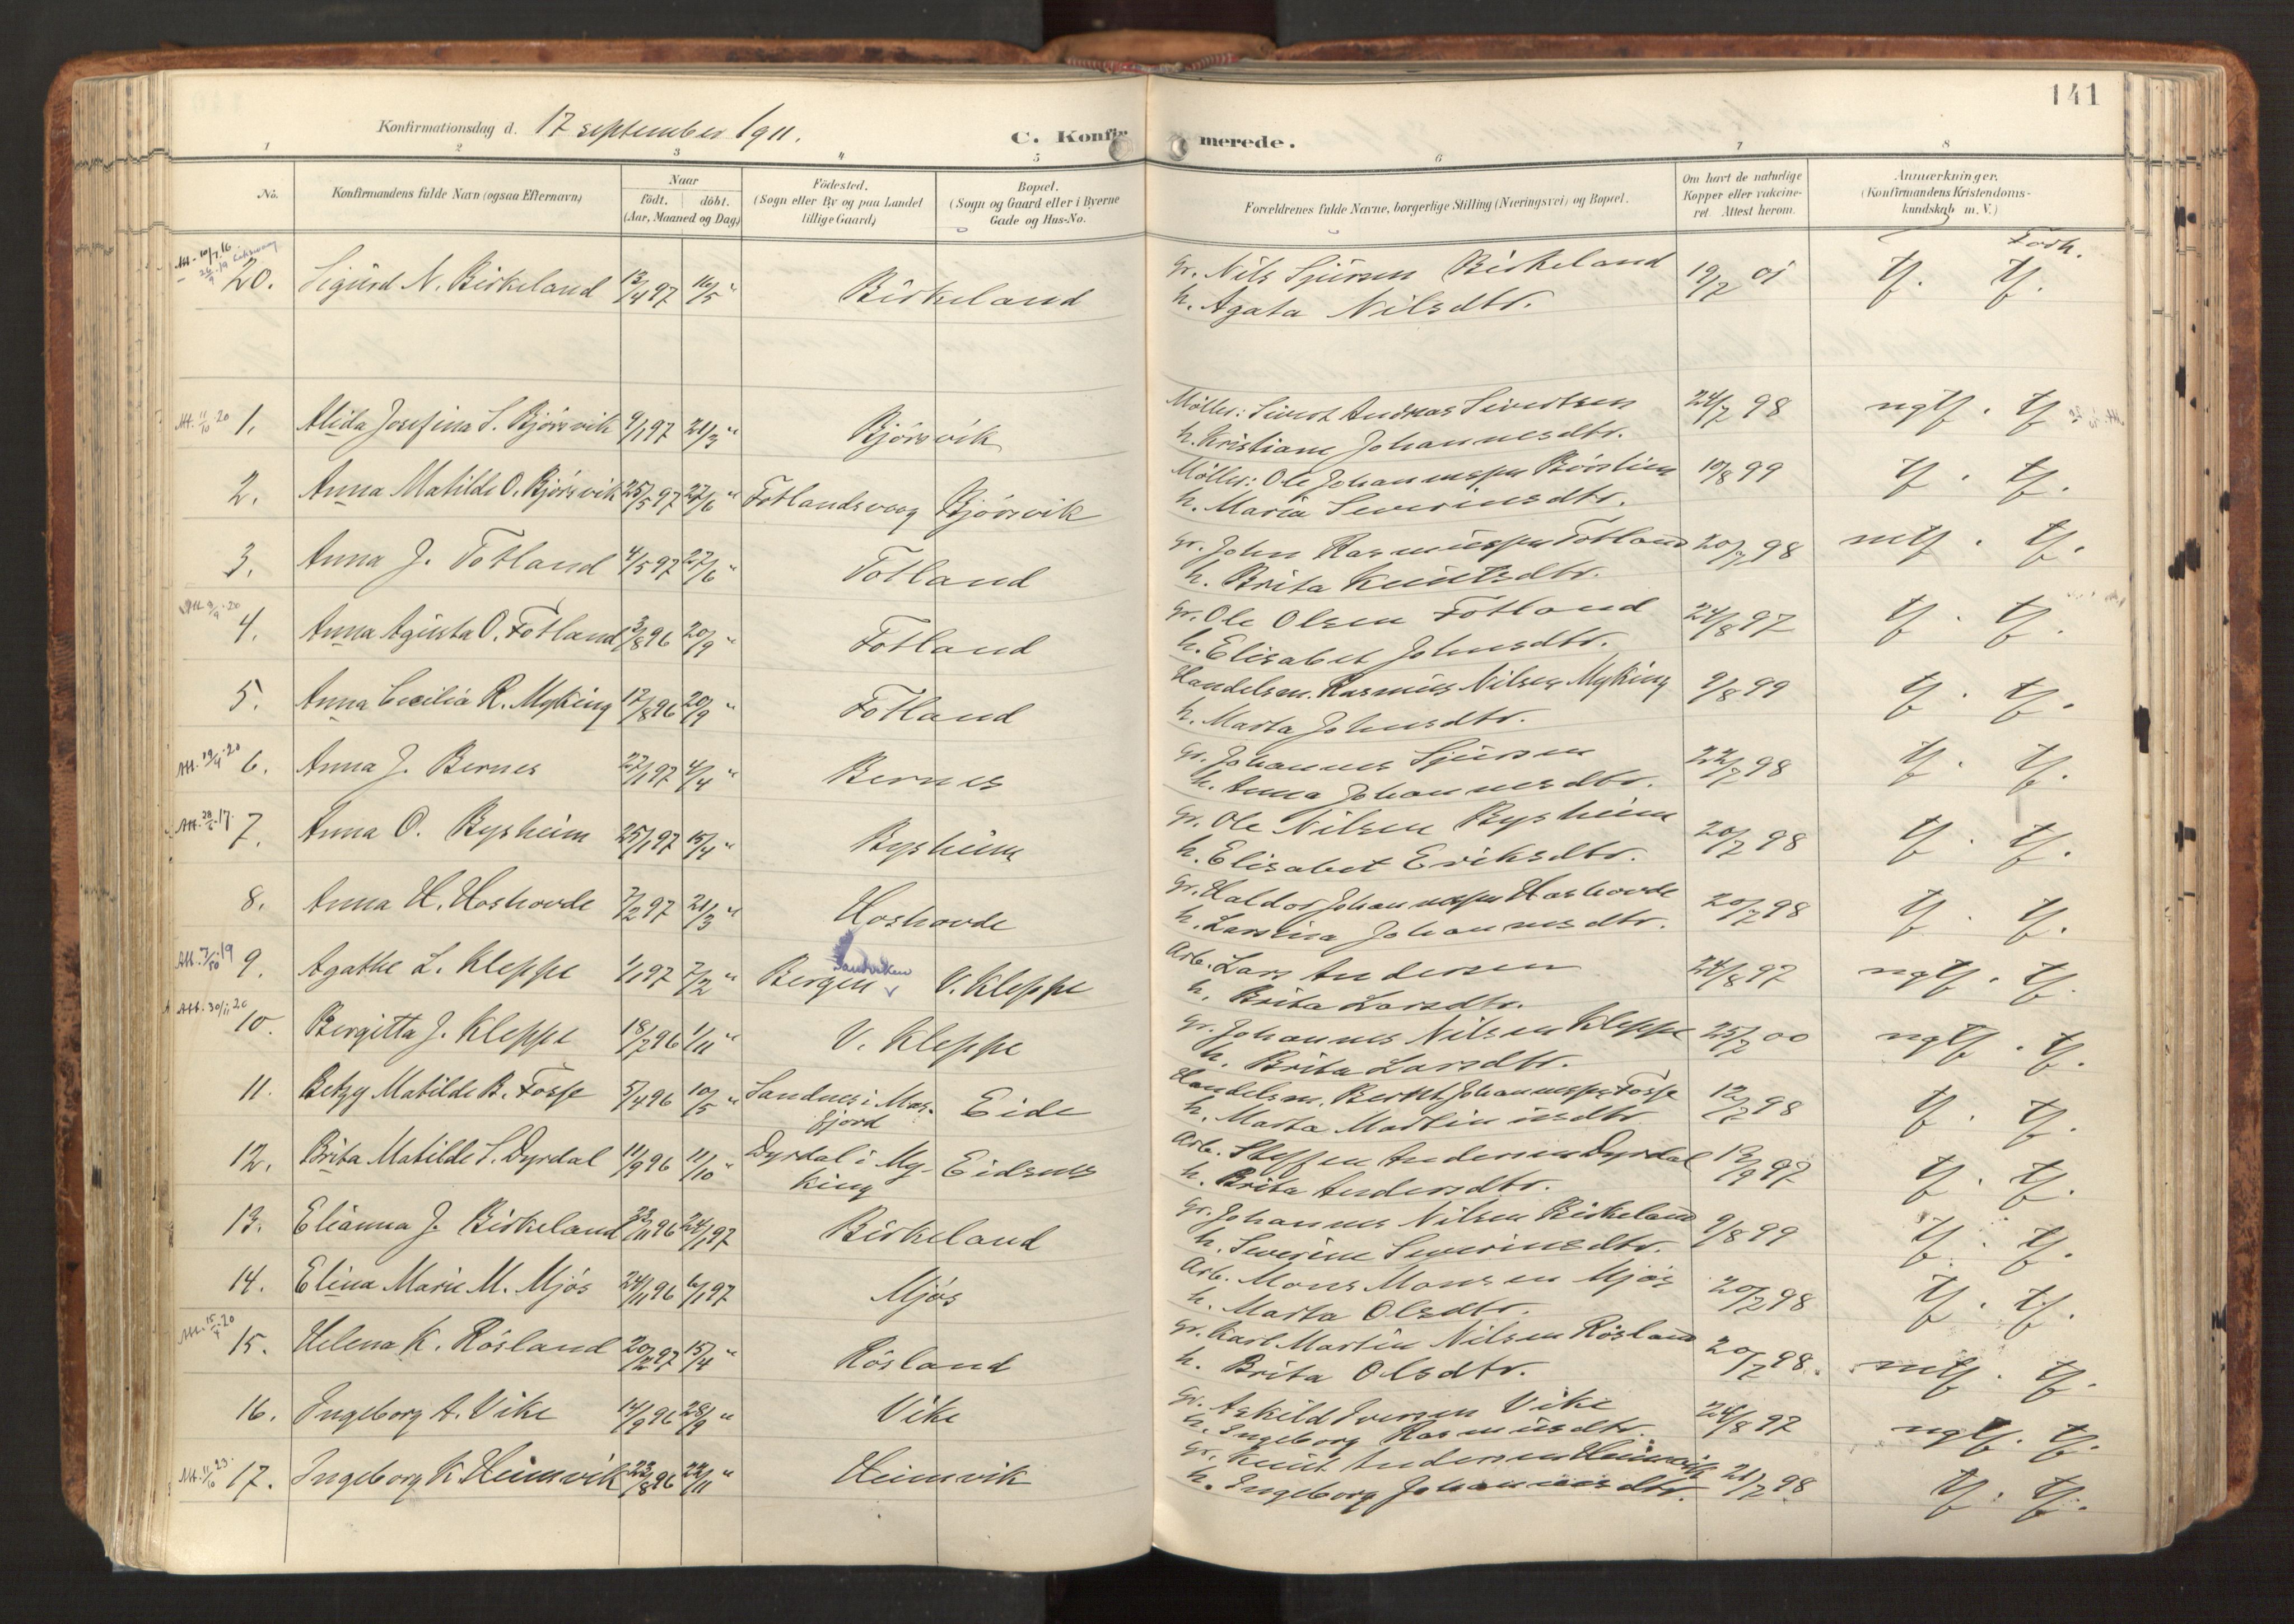 141
Konfirmationsdag d. 17 september 1911.
C. Konfirmerede.
1 2 3 4 5 6 7 8
No.
Konfirmandens fulde Navn (ogsaa Efternavn)
Naar
födt. döbt.
(Aar, Maaned og Dag)
Födested.
(Sogn eller By og paa Landet
tillige Gaard)
Bopæl.
(Sogn og Gaard eller i Byerne
Gade og Hus-No.
Forældrenes fulde Navne, borgerlige Stilling (Næringsvei) og Bopæl.
Om havt de naturlige
Kopper eller vaccine-
ret. Attest herom.
Anmærkninger.
(Konfirmandens Kristendoms-
kundskab m. V.)
Forh.
Att. 10/7 16
20. Sigurd N. Birkeland 13/4 97 16/5 " Birkeland Gr. Nils Sjursen Birkeland 19/2 01 tf. tf.
h. Agata Nilsdtr.
Att. 11/10 20
1. Alida Josefina S. Bjørsvik 9/1 97 21/3 " Bjørsvik Møller: Sivert Andreas Sivertsen 24/7 98 ngtf. tf
h. Kristiane Johannesdtr.
2. Anna Matilde O. Bjørsvik 25/5 97 27/6 " Fotlandsvaag Bjørsvik Møller: Ole Johannessen 10/8 99 tf. tf.
h. Maria Severinsdtr.
3. Anna J. Fotland 4/5 97 27/6 " Fotland Gr. John Rasmussen Fotland 20/7 98 mtf. tf.
h. Brita Knutsdtr.
Att. 9/9 20
4. Anna Agusta O. Fotland 13/8 96 20/9 " Fotland Gr. Ole Olsen Fotland 24/8 97 tf. tf.
h. Elisabet Johnsdtr.
5. Anna Cecilia R. Myking 12/8 96 20/9 " Fotland Handelsm. Rasmus Nilsen Myking 9/8 99 tf. tf.
h. Marta Johnsdtr.
Att. 29/4 20
6. Anna J. Bernes 27/1 97 4/4 " Bernes Gr. Johannes Sjursen 22/7 98 tf. tf.
h. Anna Johannesdtr.
7. Anna O. Bysheim 25/1 97 15/4 " Bysheim Gr. Ole Nilsen Bysheim 20/7 98 tf. tf.
h. Elisabet Eriksdtr.
8. Anna H. Hoshovde 7/2 97 21/3 " Hoshovde Gr. Haldor Johannessen Hoshovde 20/7 98 tf. tf.
h. Larsina Johannesdtr.
Att. 7/10 19
9. Agathe L. Kleppe 1/1 97 7/2 " Bergen Sandviken V. Kleppe Arb. Lars Andersen 24/8 97 ngtf. tf.
h. Brita Larsdtr.
Att. 30/11 20
10. Bergitta J. Kleppe 18/7 96 1/11 " V. Kleppe Gr. Johannes Nilsen Kleppe 25/2 00 ngtf. tf.
h. Brita Larsdtr.
11. Betzy Matilde B. Fosse 5/4 96 10/5 " Sandnes i Mas- Eide Handelsm. Bernt Johannessen Fosse 12/7 98 tf. tf.
fjord h. Marta Martinusdtr
12. Brita Matilde S. Dyrdal 11/9 96 11/10 " Dyrdal i My- Eidsnes Arb. Steffen Andersen Dyrdal 13/9 97 tf. tf.
king h. Brita Andersdtr.
13. Elianna J. Birkeland 23/11 96 24/1 97 Birkeland Gr. Johannes Nilsen Birkeland 9/8 99 tf. tf.
h. Severine Severinsdtr.
14. Elina Marie M. Mjøs 24/11 96 6/1 97 Mjøs Arb. Mons Monsen Mjøs 20/7 98 tf. tf.
h. Marta Olsdtr.
Att. 15/4 20
15. Helena K. Røsland 97 15/4 " Røsland Gr. Karl Martin Nilsen Røsland 20/7 98. mtf. tf.
h. Brita Olsdtr.
16. Ingeborg A. Vike 14/9 96 28/9 " Vike Gr. Askild Iversen Vike 24/8 97 ngtf. tf.
h. Ingeborg Rasmusdtr.
Att. 11/10 23.
17. Ingeborg K. Heimvik 23/8 96 22/11 " Heimvik Gr. Knut Andersen Heimvik 21/7 98 tf. tf.
h. Ingeborg Johannesdtr.